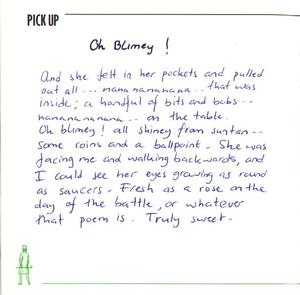 PICK UP
Oh Blimey !
And she felt in her pockets and pulled
out all ... nananananana .. that was
inside ; a handful of bits and bobs --
nananananana -- on the table.
Oh blimey ! all shiney from suntan --
Some coins and a ballpoint . She was
facing me and walking backwards, and
I could see her eyes growing as round
as saucers . Fresh as a rose on the
day of the battle , or whatever
that poem is . Truly sweet .